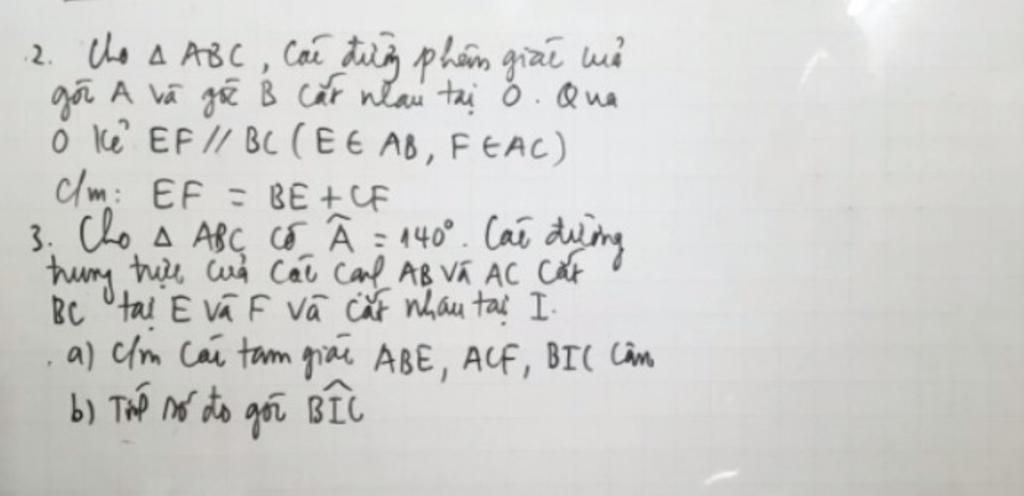 2. Cho Δ ABC, Các đường phân giác của
góc A và góc B cắt nhau tại O. Qua
O kẻ EF // BC (E ∈ AB, F ∈ AC)
c/m: EF = BE + CF
3. Cho Δ ABC có Â = 140°. Các đường
trung trực của các cạnh AB và AC cắt
BC tại E và F và cắt nhau tại I.
a) c/m các tam giác ABE, ACF, BIC cân
b) Tính số đo góc BÎC